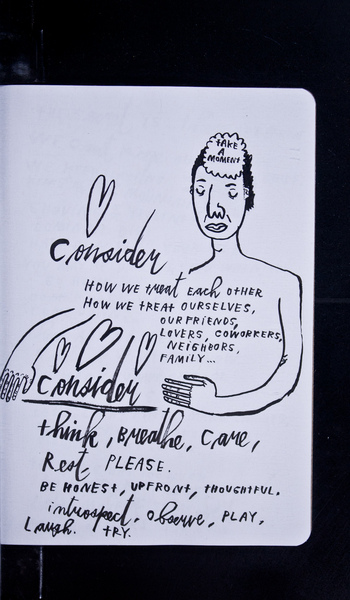 TAKE
A
MOMENT
Consider
HOW WE treat EACH OTHER
HOW WE TREAT OURSELVES,
OUR FRIENDS,
LOVERS, COWORKERS,
NEIGHBORS,
FAMILY...
Consider
think, Breathe, Care,
Rest, PLEASE.
BE HONEST, UPFRONT, tHOUGHTFUL.
introspect, observe, PLAY,
Laugh. tRY.